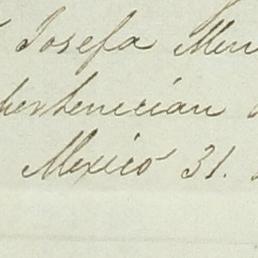 Josefa Men
pertenecian
Mexico 31.